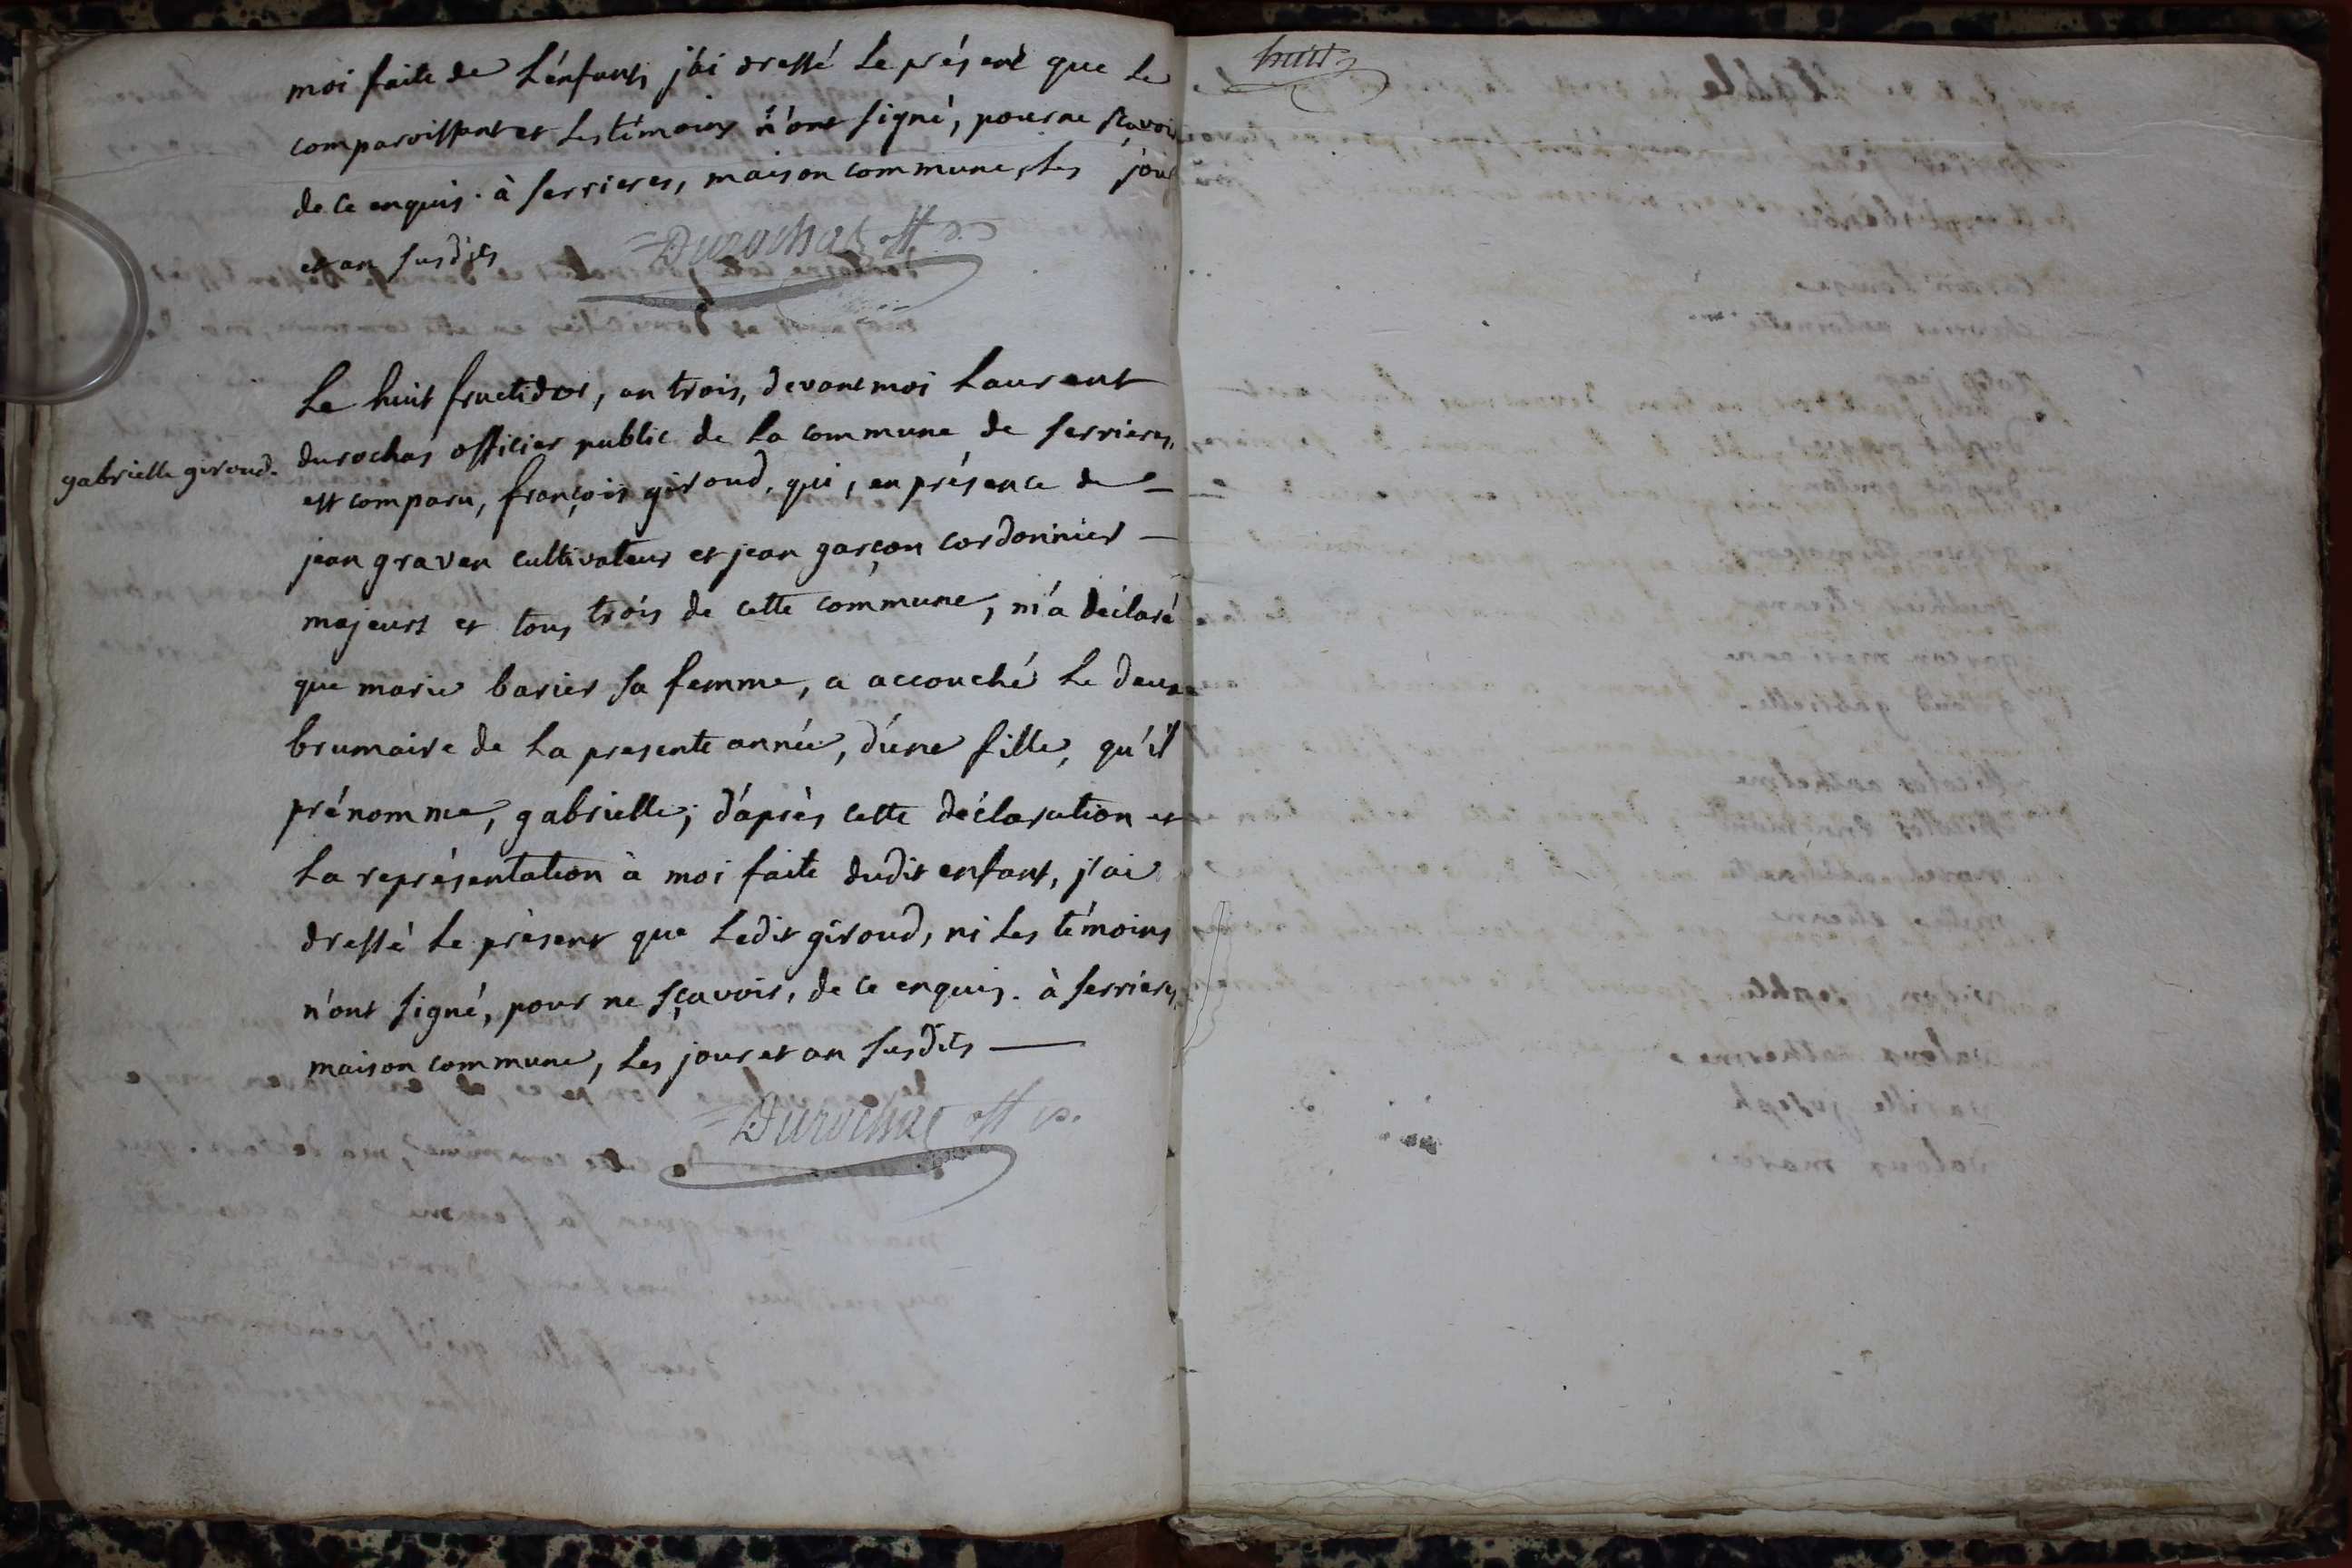 moi faite de L'enfant, j'ai dressé Le présent que Le
comparoissant et Les témoins n'ont signé, pour ne sçavoir
de ce enquis. à serrieres, maison commune, Les jour
et an susdits
Durochas off p.
Le huit fructidor, an trois, devant moi Laurent
durochas officier public de La commune de serrieres,
gabrielle giroud.
est comparu, françois giroud, qui, en présence de
jean graven cultivateur et jean garçon cordonnier
majeurs et tous trois de cette commune, m'a déclaré
que marie barier sa femme, a accouché Le deux
brumaire de La presente année, d'une fille, qu'il
prénomme, gabrielle; d'après cette déclaration et
La représentation à moi faite dudit enfant, j'ai
dressé Le présent que Ledit giroud, ni Les témoins
n'ont signé, pour ne sçavoir, de ce enquis. à serrieres,
maison commune, Les jour et an susdits
Durochas off p.
huit